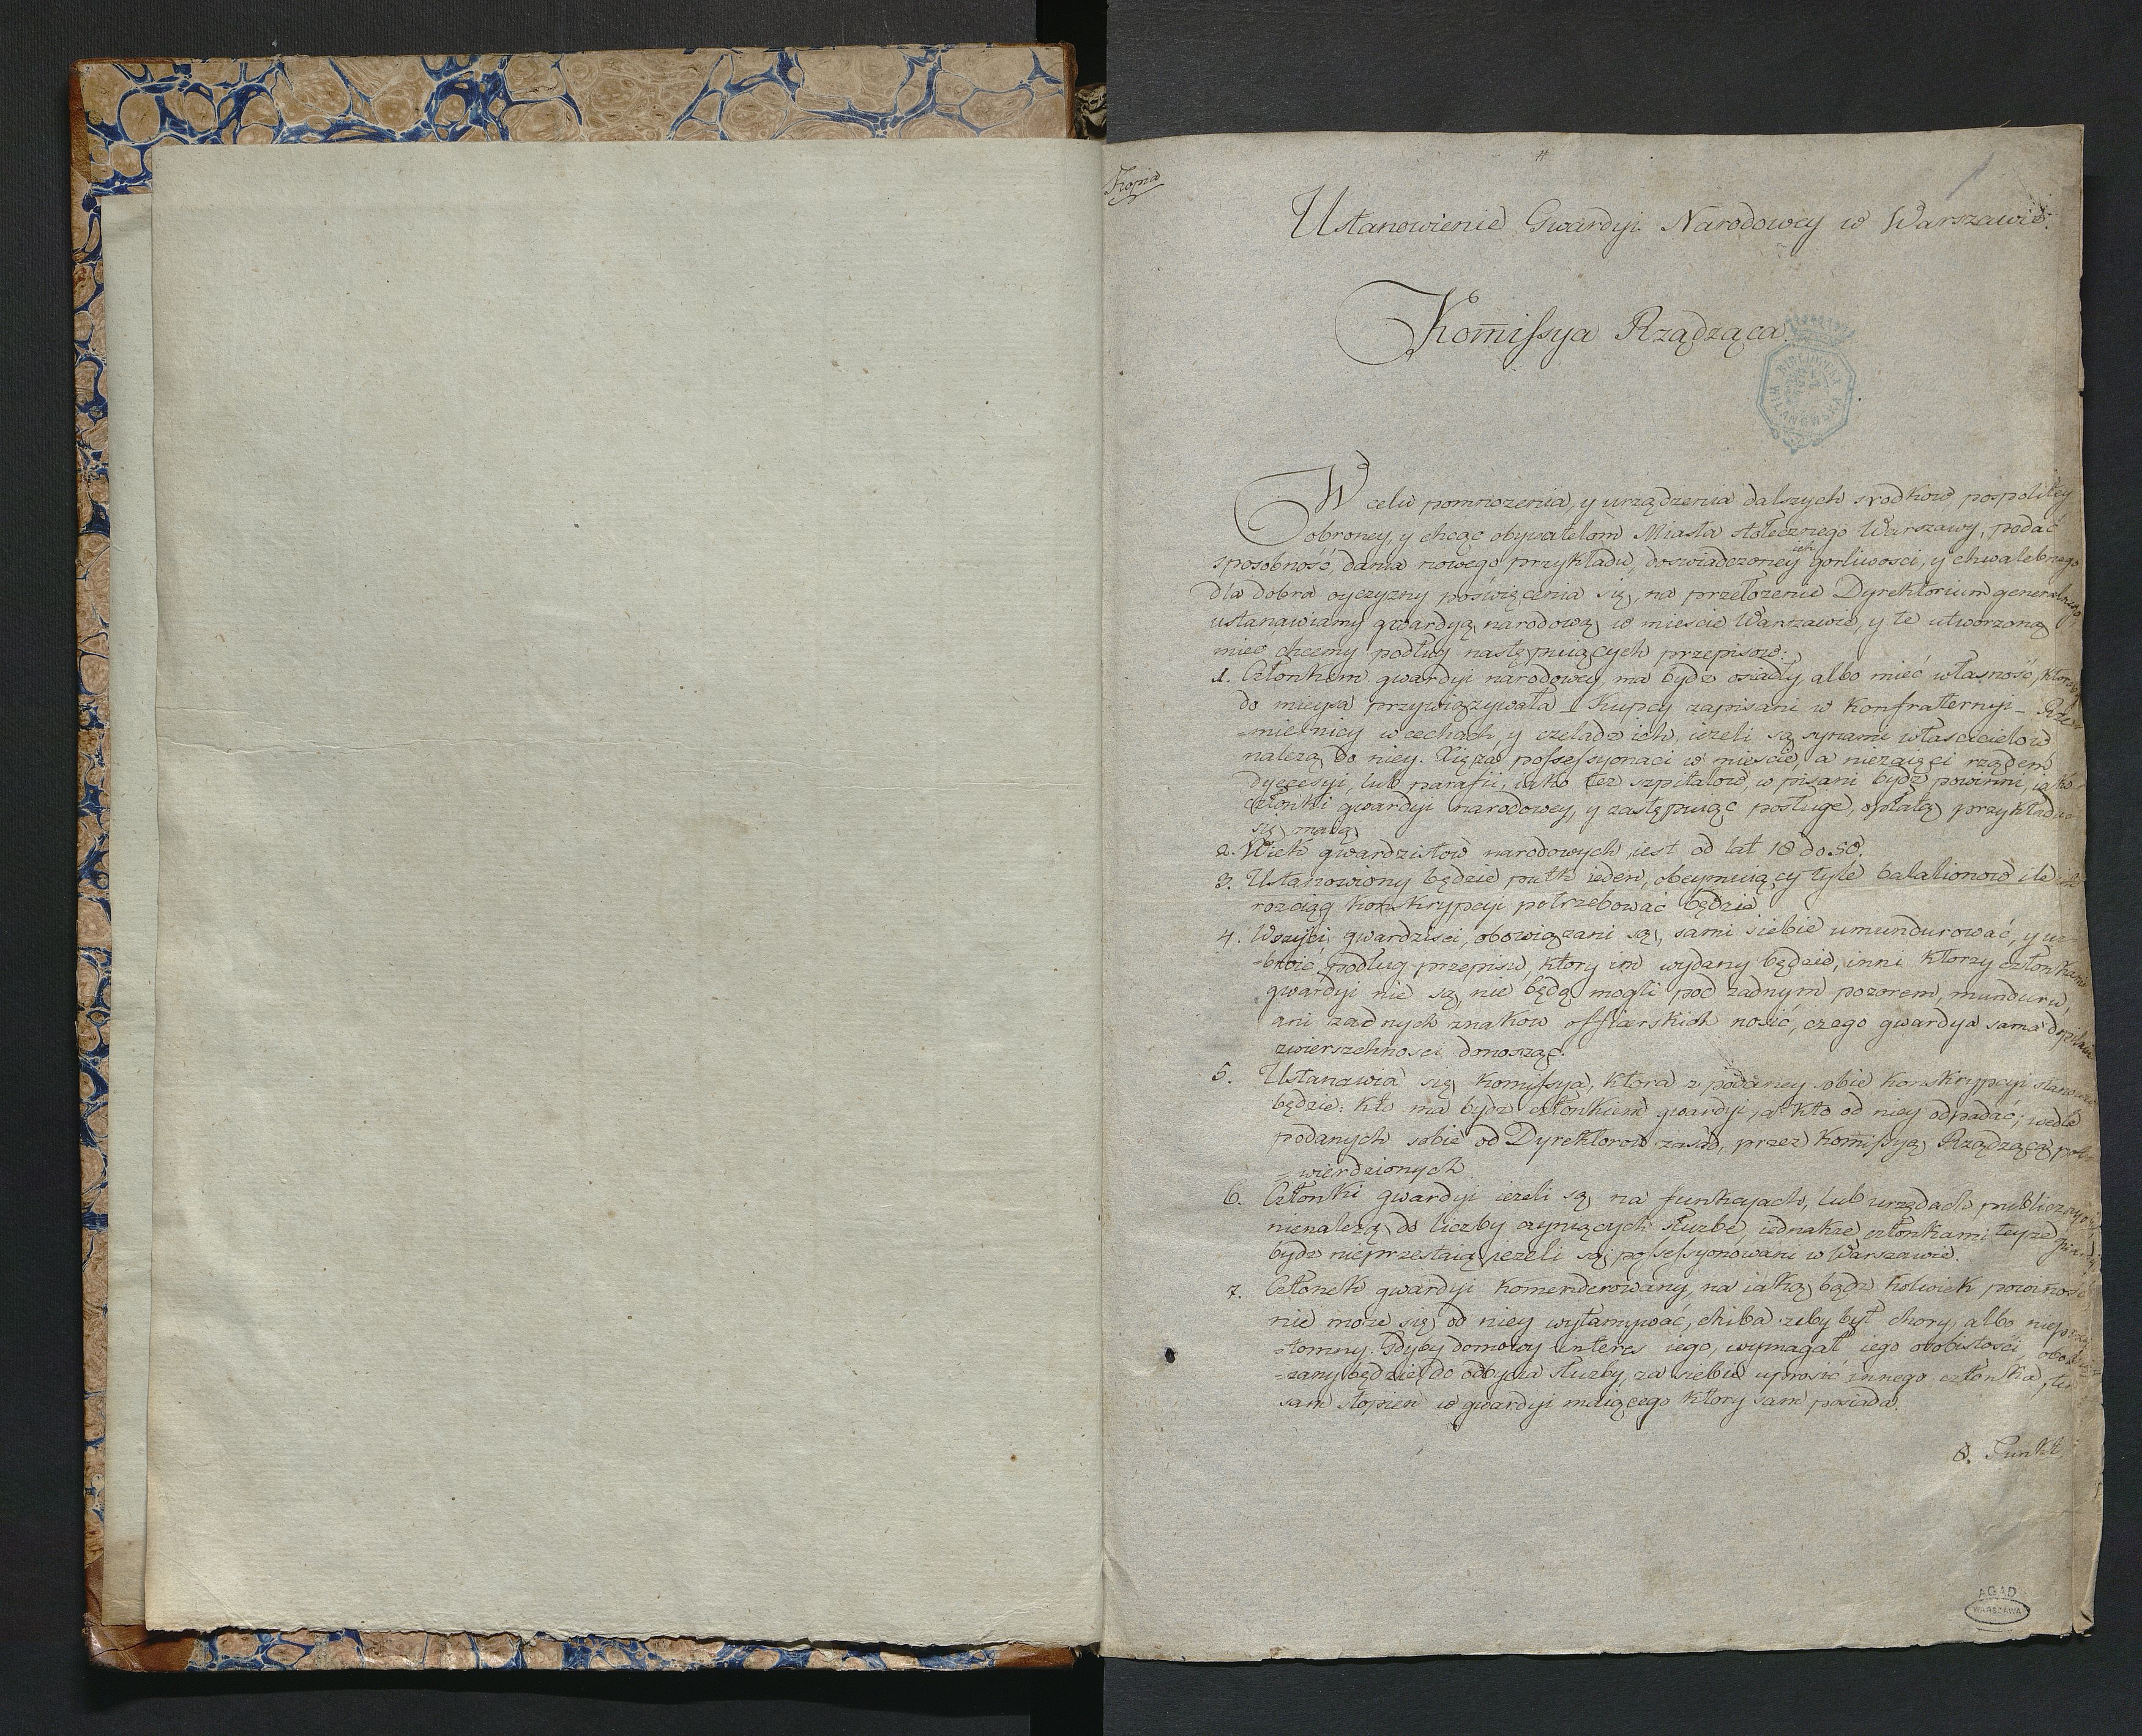 Kopia
1
Ustanowienie Gwardyi Narodowey w Warszawie.
Kom̃issya Rządząca.
BIBLIOTEKA
WILANOWSKA
W celu pomnożenia, y urządzenia dalszych srodkow pospolitey
obroney, y chcąc obywatelom Miasta stołecznego Warszawy, podać
sposobność, dania nowego przykładu, doswiadczoney ich gorliwosci, y chwalebnego
dla dobra oyczyzny poświęcenia się, na przełożenie Dyrektorium generalnego
ustanawiamy gwardyą narodową w miescie Warszawie, y te utworzoną
mieć chcemy podług następuiących przepisow:
1. Członkiem gwardyi narodowey, ma bydz osiadły albo mieć własność, ktoraby
do mieysca przywiązywała _ Kupcy zapisani w Konfraternyi _ Rze-
=mieslnicy w cechach, y czeladz ich, ieżeli są synami właścicielow
należą do niey. Xięża possessyonaci w miescie, a niezaięci rządem
dyecezyi, lub parafii, iako też szpitalow, wpisani bydź powinni, iako
członki gwardyi narodowey, y zastępuiąc posługe, opłatą przykładać
się maią.
2. Wiek gwardzistow narodowych iest od lat 18 do 50.
3. Ustanowiony będzie pułk ieden, obeymuiący tyle batalionow ile ich
rozciąg konskrypcyi potrzebować będzie
4. Wszyści gwardzisci, obowiązani są, sami siebie umundurować, y uz-
=broić podług przepisu, ktory im wydany będzie, inni ktorzy członkami
gwardyi nie są, nie będą mogli pod żadnym pozorem, munduru,
ani żadnych znakow officerskich nosić, czego gwardya sama dopilnuie
zwierzchnosci donosząc.
5. Ustanawia się Komissya, ktora z podaney sobie konskrypcyi stanowić
będzie: kto ma bydz członkiem gwardyi, a kto od niey odpadać; wedle
podanych sobie od Dyrektorow zasad, przez Kom̃issyą Rządzącą pot-
=wierdzionych
6. Członki gwardyi ieżeli są na funkcyach, lub urzędach publicznych
nienależą do liczby czyniących służbe, iednakże członkami teyże gwardyi
bydz nieprzestaią ieżeli są possessyonowani w Warszawie.
7. Członek gwardyi komenderowany, na iaką bądz kolwiek powinnosć
nie może się od niey wyłamywać, chiba żeby był chory, albo nieprzy-
=tomny. Gdyby domowy interes iego, wymagał iego osobistości, obowią-
=zany będzie, do odbycia służby, za siebie uprosić innego członka, ten
sam stopien w gwardyi maiącego ktory sam posiada.
8. Punkt
AGAD
WARSZAWA